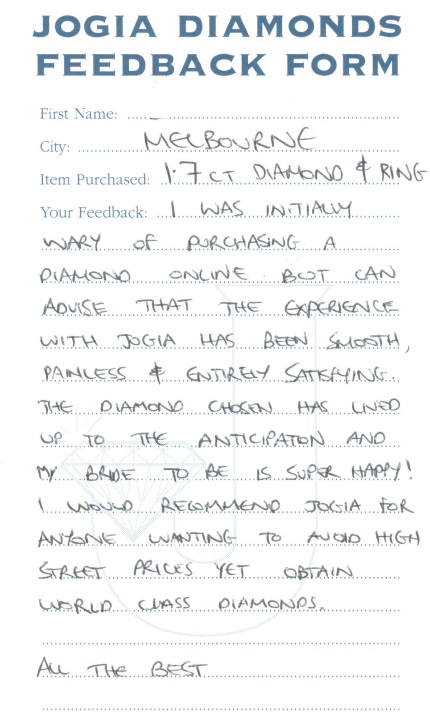 JOGIA DIAMONDS
FEEDBACK FORM
First Name:
City: MELBOURNE
Item Purchased: 1.7 CT DIAMOND & RING
Your Feedback: I WAS INITIALLY
WARY OF PURCHASING A
DIAMOND ONLINE BUT CAN
ADVISE THAT THE EXPERIENCE
WITH JOGIA HAS BEEN SMOOTH,
PAINLESS & ENTIRELY SATISFYING.
THE DIAMOND CHOSEN HAS LIVED
UP TO THE ANTICIPATON AND
MY BRIDE TO BE IS SUPER HAPPY!
I WOULD RECOMMEND JOGIA FOR
ANYONE WANTING TO AVOID HIGH
STREET PRICES YET OBTAIN
WORLD CLASS DIAMONDS.
ALL THE BEST